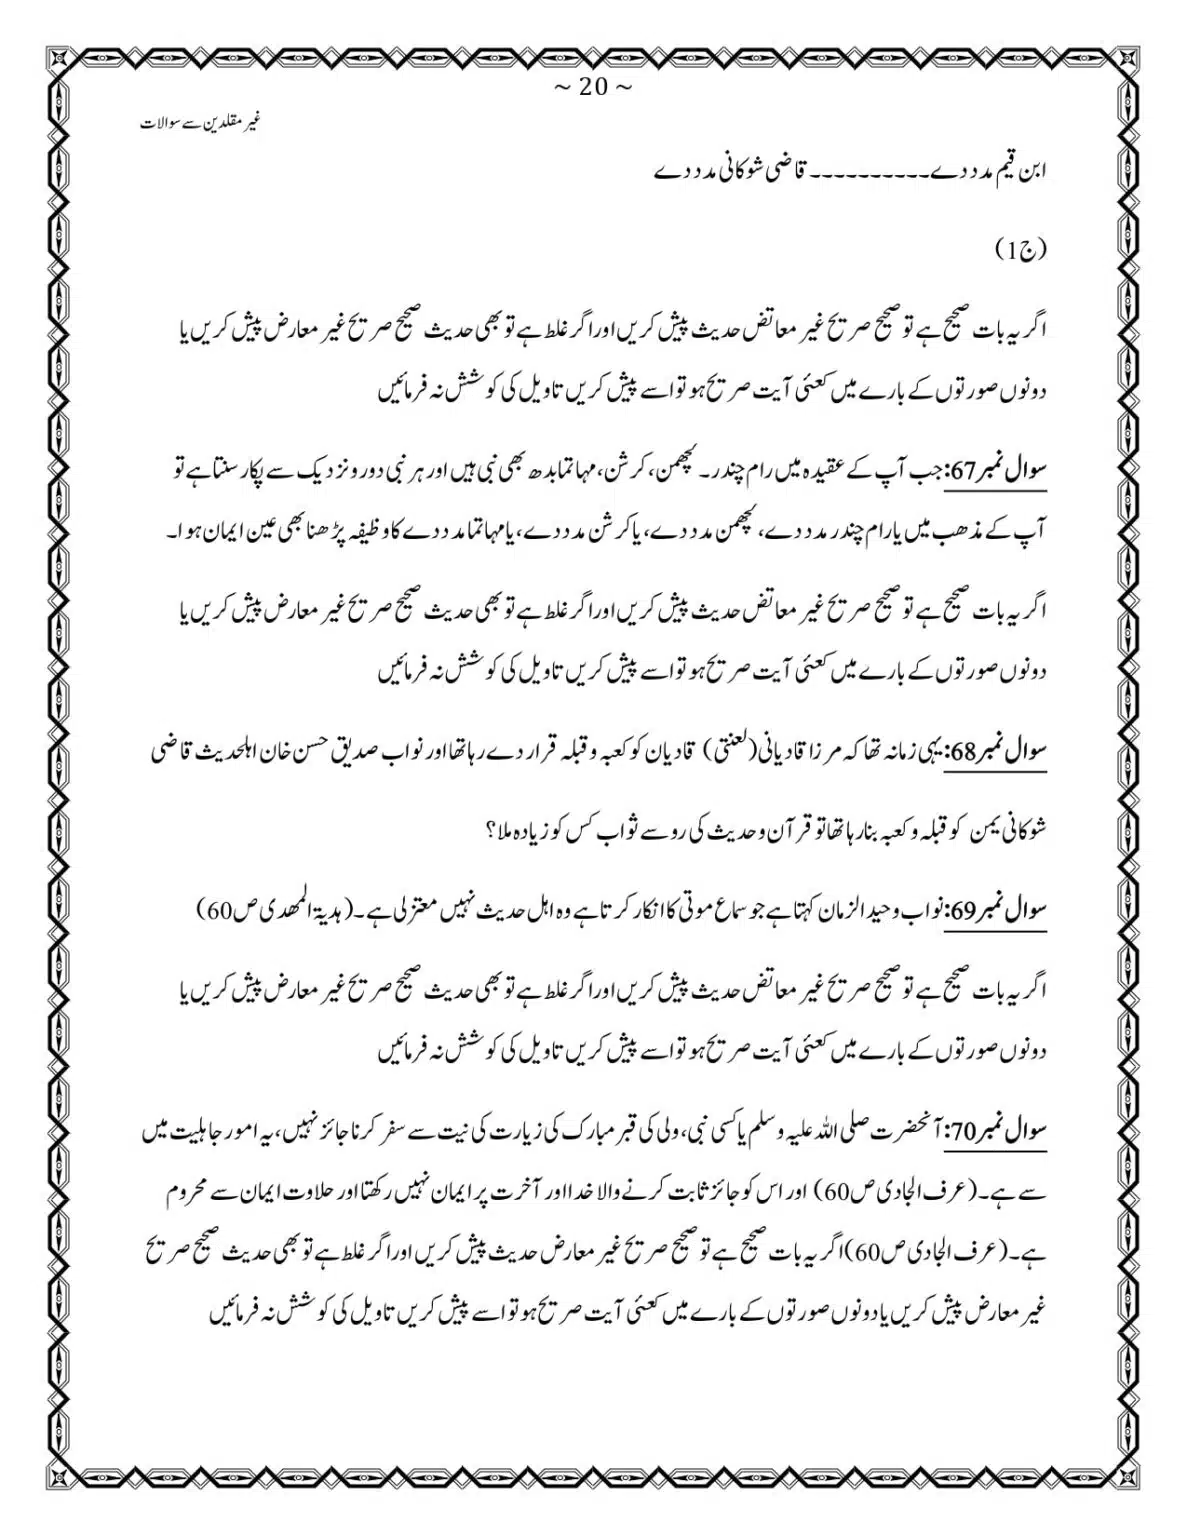 ~ 20 ~
غیر مقلدین سے سوالات
ابن قیم مدد دے۔۔۔۔۔۔۔۔۔۔ قاضی شوکانی مدد دے
(ج1)
اگر یہ بات صحیح ہے تو صحیح صریح غیر معاتض حدیث پیش کریں اور اگر غلط ہے تو بھی حدیث صحیح صریح غیر معارض پیش کریں یا
دونوں صورتوں کے بارے میں کعئی آیت صریح ہو تو اسے پیش کریں تاویل کی کوشش نہ فرمائیں
سوال نمبر 67: جب آپ کے عقیدہ میں رام چندر۔ لچھمن، کرشن، مہاتما بدھ بھی نبی ہیں اور ہر نبی دور و نزدیک سے پکار سنتا ہے تو
آپ کے مذھب میں یا رام چندر مدد دے، لچھمن مدد دے، یا کرشن مدد دے، یا مہاتما مدد دے کا وظیفہ پڑھنا بھی عین ایمان ہوا۔
اگر یہ بات صحیح ہے تو صحیح صریح غیر معاتض حدیث پیش کریں اور اگر غلط ہے تو بھی حدیث صحیح صریح غیر معارض پیش کریں یا
دونوں صورتوں کے بارے میں کعئی آیت صریح ہو تو اسے پیش کریں تاویل کی کوشش نہ فرمائیں
سوال نمبر 68: یہی زمانہ تھا کہ مرزا قادیانی (لعنتی) قادیان کو کعبہ و قبلہ قرار دے رہا تھا اور نواب صدیق حسن خان اہلحدیث قاضی
شوکانی یمن کو قبلہ و کعبہ بنا رہا تھا تو قرآن و حدیث کی رو سے ثواب کس کو زیادہ ملا؟
سوال نمبر 69: نواب وحید الزمان کہتا ہے جو سماع موتی کا انکار کرتا ہے وہ اہل حدیث نہیں معتزلی ہے۔ (ہدیۃ المھدی ص60)
اگر یہ بات صحیح ہے تو صحیح صریح غیر معاتض حدیث پیش کریں اور اگر غلط ہے تو بھی حدیث صحیح صریح غیر معارض پیش کریں یا
دونوں صورتوں کے بارے میں کعئی آیت صریح ہو تو اسے پیش کریں تاویل کی کوشش نہ فرمائیں
سوال نمبر 70: آنحضرت صلی اللہ علیہ وسلم یا کسی نبی، ولی کی قبر مبارک کی زیارت کی نیت سے سفر کرنا جائز نہیں، یہ امور جاہلیت میں
سے ہے۔ (عرف الجادی ص60) اور اس کو جائز ثابت کرنے والا خدا اور آخرت پر ایمان نہیں رکھتا اور حلاوت ایمان سے محروم
ہے۔ (عرف الجادی ص60) اگر یہ بات صحیح ہے تو صحیح صریح غیر معارض حدیث پیش کریں اور اگر غلط ہے تو بھی حدیث صحیح صریح
غیر معارض پیش کریں یا دونوں صورتوں کے بارے میں کعئی آیت صریح ہو تو اسے پیش کریں تاویل کی کوشش نہ فرمائیں